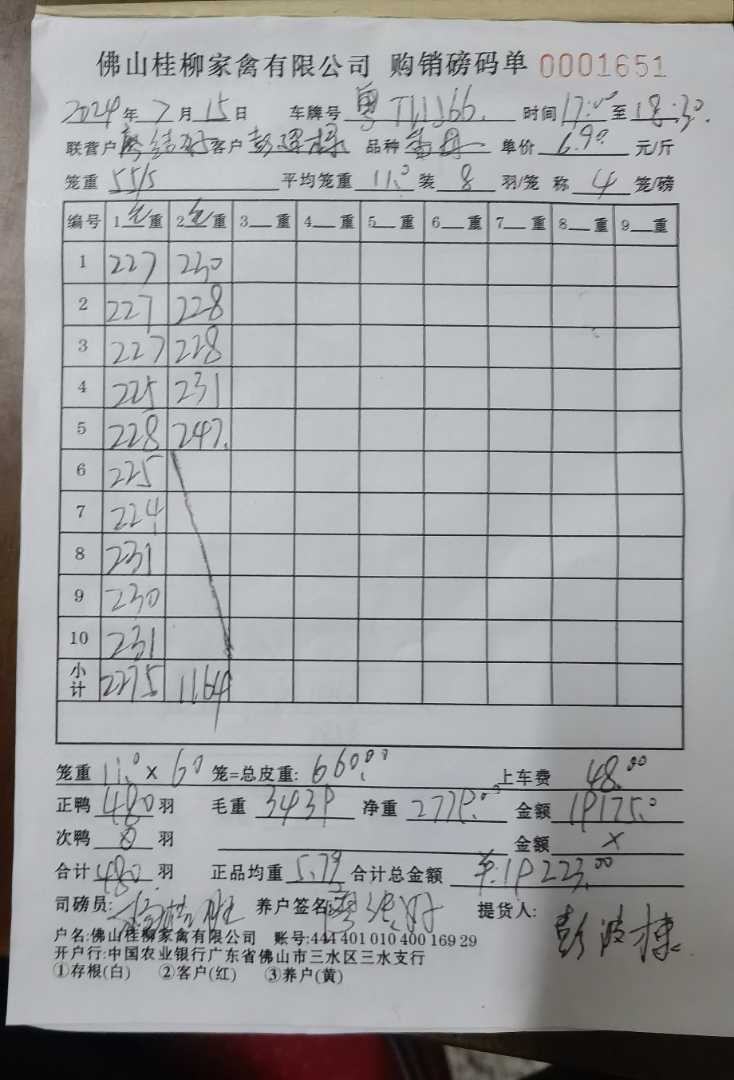 佛山桂柳家禽有限公司 购销磅码单 0001651
2024年7月15日 车牌号 粤 时间 17:00 至 18:30
联营户 客户 彭 品种 单价 6.90 元/斤
笼重 55/5 平均笼重 11.0 装 8 羽/笼 称 4 笼/磅
编号 1 毛 重 2 毛 重 3 重 4 重 5 重 6 重 7 重 8 重 9 重
1 227 230
2 227 228
3 227 228
4 225 231
5 228 247
6 225
7 224
8 231
9 230
10 231
小计 2275 1164
笼重 11.0 × 60 笼=总皮重: 660.00 上车费 48.00
正鸭 480 羽 毛重 3439 净重 2779.00 金额 19175.0
次鸭 0 羽 金额 ×
合计 480 羽 正品均重 5.79 合计总金额 ¥:19223.00
司磅员: 养户签名: 提货人: 彭波棟
户名:佛山桂柳家禽有限公司 账号:444 401 010 400 169 29
开户行:中国农业银行广东省佛山市三水区三水支行
①存根(白) ②客户(红) ③养户(黄)